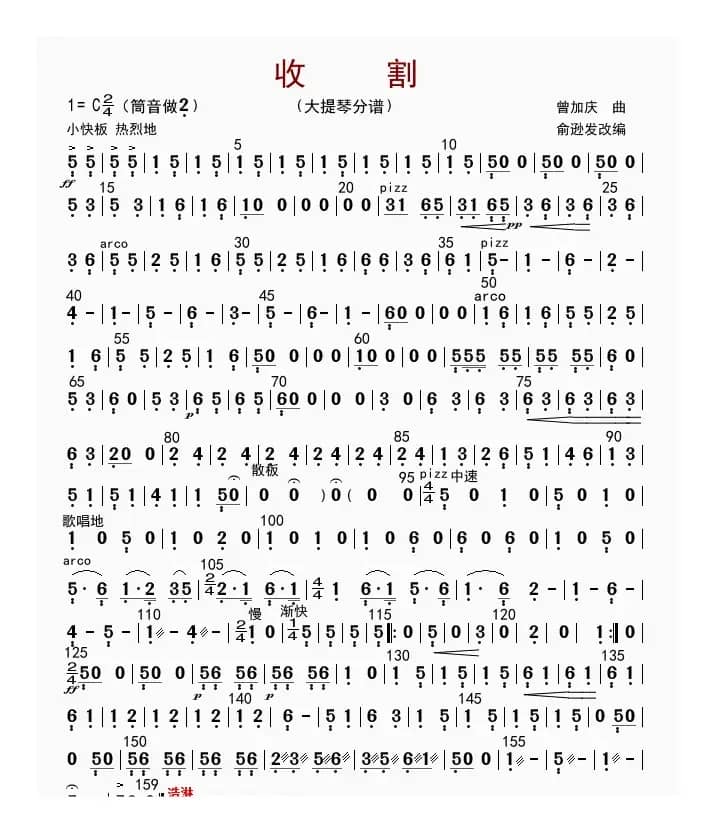 收 割
1= C 2/4 (筒音做2) (大提琴分谱) 曾加庆 曲
小快板 热烈地 俞逊发改编
5 10
5 5 | 5 5 | 1 5 | 1 5 | 1 5 | 1 5 | 1 5 | 1 5 | 1 5 | 1 5 | 50 0 | 50 0 | 50 0 |
ff 15 20 pizz 25
5 3 | 5 3 | 1 6 | 1 6 | 10 0 | 0 0 | 0 0 | 31 65 | 31 65 | 3 6 | 3 6 | 3 6 |
pp
arco 30 35 pizz
3 6 | 5 5 | 2 5 | 1 6 | 5 5 | 2 5 | 1 6 | 3 6 | 3 6 | 6 1 | 5 - | 1 - | 6 - | 2 - |
40 45 arco 50
4 - | 1 - | 5 - | 6 - | 3 - | 5 - | 6 - | 1 - | 60 0 | 0 0 | 1 6 | 1 6 | 5 5 | 2 5 |
55 60
1 6 | 5 5 | 2 5 | 1 6 | 50 0 | 0 0 | 10 0 | 0 0 | 555 55 | 55 55 | 6 0 |
65 70 75
5 3 | 6 0 | 5 3 | 6 5 | 6 5 | 60 0 | 0 0 | 3 0 | 6 3 | 6 3 | 6 3 | 6 3 | 6 3 |
p
80 85 90
6 3 | 20 0 | 2 4 | 2 4 | 2 4 | 2 4 | 2 4 | 2 4 | 1 3 | 2 6 | 5 1 | 4 6 | 1 3 |
散板 95 pizz 中速
5 1 | 5 1 | 4 1 | 1 50 | 0 0 ) 0 ( 0 0 | 4/4 5 0 1 0 | 5 0 1 0 |
歌唱地 100
1 0 5 0 | 1 0 2 0 | 1 0 1 0 | 1 0 6 0 | 6 0 6 0 | 1 0 6 0 |
arco 105
5· 6 1·2 35 | 2/4 2·1 6·1 | 4/4 1 6·1 5·6 | 1· 6 2 - | 1 - 6 - |
110 慢 渐快 115 120
4 - 5 - | 1 - 4 - | 2/4 1 0 | 1/4 5 | 5 | 5 | 5 :| 0 | 5 | 0 | 3 | 0 | 2 | 0 1 :| 0 |
125 130 135
2/4 50 0 | 50 0 | 56 56 | 56 56 | 0 1 | 1 5 | 1 5 | 1 5 | 6 1 | 6 1 | 6 1 |
ff p p
140 145
6 1 | 1 2 | 1 2 | 1 2 | 1 2 | 6 - | 5 1 | 6 3 | 1 5 | 1 5 | 1 5 | 1 5 | 0 50 |
150 155
0 50 | 56 56 | 56 56 | 23 56 | 35 61 | 50 0 | 1 - | 5 - | 1 - |
159
浩淋